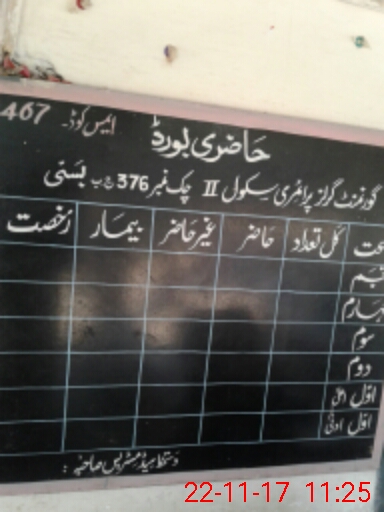 ایمس کوڈ۔ 467
حاضری بورڈ
گورنمنٹ گرلز پرائمری سکول II چک نمبر 376 ج ب بستی
کل تعداد حاضر غیر حاضر بیمار رخصت
سوم
دوم
اوّل اعلیٰ
اوّل ادنیٰ
دستخط ہیڈ مسٹریس صاحبہ :
22-11-17 11:25